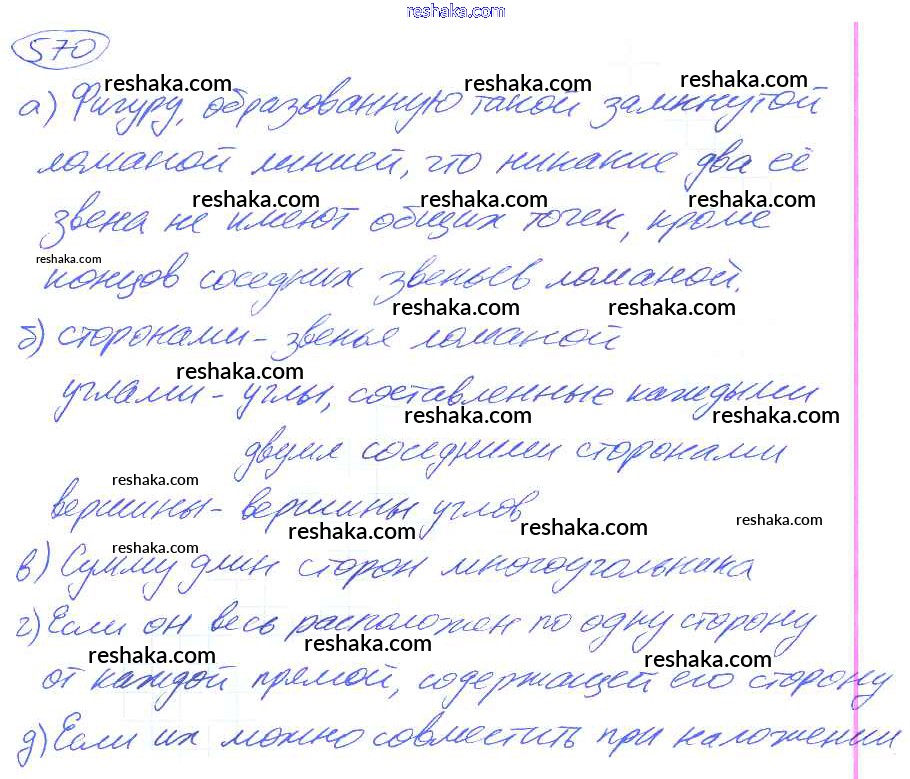 reshaka.com
570
reshaka.com reshaka.com reshaka.com
а) Фигуру, образованную такой замкнутой
ломаной линией, что никакие два её
reshaka.com reshaka.com reshaka.com
звена не имеют общих точек, кроме
reshaka.com
концов соседних звеньев ломаной.
reshaka.com reshaka.com
б) сторонами - звенья ломаной
reshaka.com
углами - углы, составленные каждыми
reshaka.com reshaka.com
двумя соседними сторонами
reshaka.com
вершины - вершины углов
reshaka.com reshaka.com reshaka.com
reshaka.com
в) Сумму длин сторон многоугольника
г) Если он весь расположен по одну сторону
reshaka.com reshaka.com reshaka.com
от каждой прямой, содержащей его сторону
д) Если их можно совместить при наложении